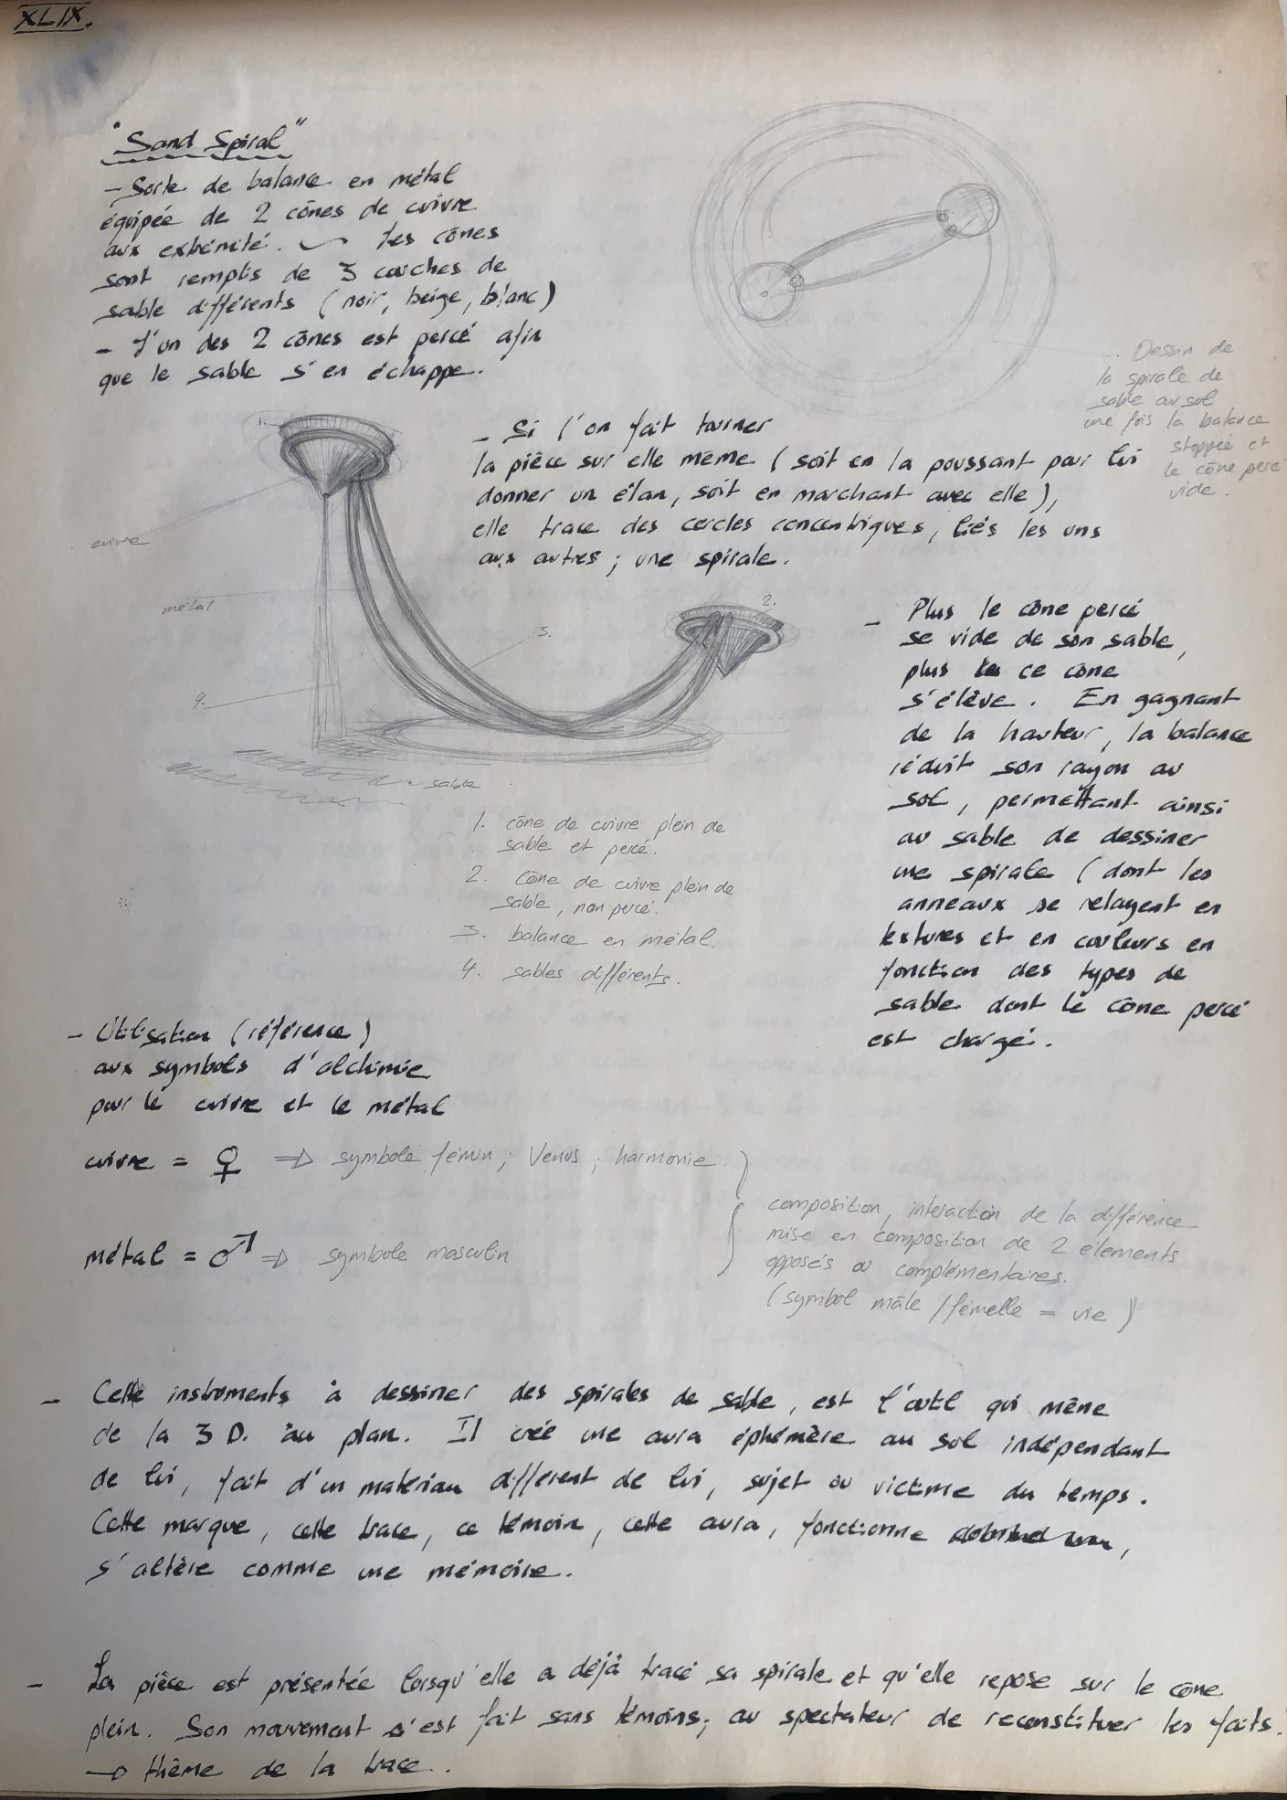 XLIX.
"Sand Spiral"
- Sorte de balance en métal
équipée de 2 cônes de cuivre
aux extrémité. Les cônes
sont remplis de 3 couches de
sable différents (noir, beige, blanc)
- L'un des 2 cônes est percé afin
que le sable s'en échappe.
Dessin de
la spirale de
sable au sol
une fois la balance
stoppée et
le cône percé
vide.
1.
- Si l'on fait tourner
la pièce sur elle même (soit en la poussant pour lui
donner un élan, soit en marchant avec elle),
elle trace des cercles concentriques, liés les uns
aux autres ; une spirale.
cuivre
métal
2.
3.
4.
sable
- Plus le cône percé
se vide de son sable,
plus ce cône
s'élève. En gagnant
de la hauteur, la balance
réduit son rayon au
sol, permettant ainsi
au sable de dessiner
une spirale (dont les
anneaux se relayent en
textures et en couleurs en
fonction des types de
sable dont le cône percé
est chargé.
1. cône de cuivre plein de
sable et percé.
2. Cône de cuivre plein de
sable, non percé.
3. balance en métal
4. sables différents.
- Utilisation (référence)
aux symbols d'alchimie
pour le cuivre et le métal
cuivre = ♀ ⇒ symbole féminin ; Venus ; harmonie }
métal = ♂ ⇒ symbole masculin
{ composition, interaction de la différence
mise en composition de 2 élements
opposés ou complémentaires.
(symbol mâle / fémelle = vie)
- Cette instruments à dessiner des spirales de sable, est l'outil qui mène
de la 3D. au plan. Il créé une aura éphémère au sol indépendant
de lui, fait d'un matériau différent de lui, sujet ou victime du temps.
Cette marque, cette trace, ce témoin, cette aura, fonctionne
s'altère comme une mémoire.
- La pièce est présentée lorsqu'elle a déjà tracé sa spirale et qu'elle repose sur le cône
plein. Son mouvement s'est fait sans témoins; au spectateur de reconstituer les faits.
→ thème de la trace.